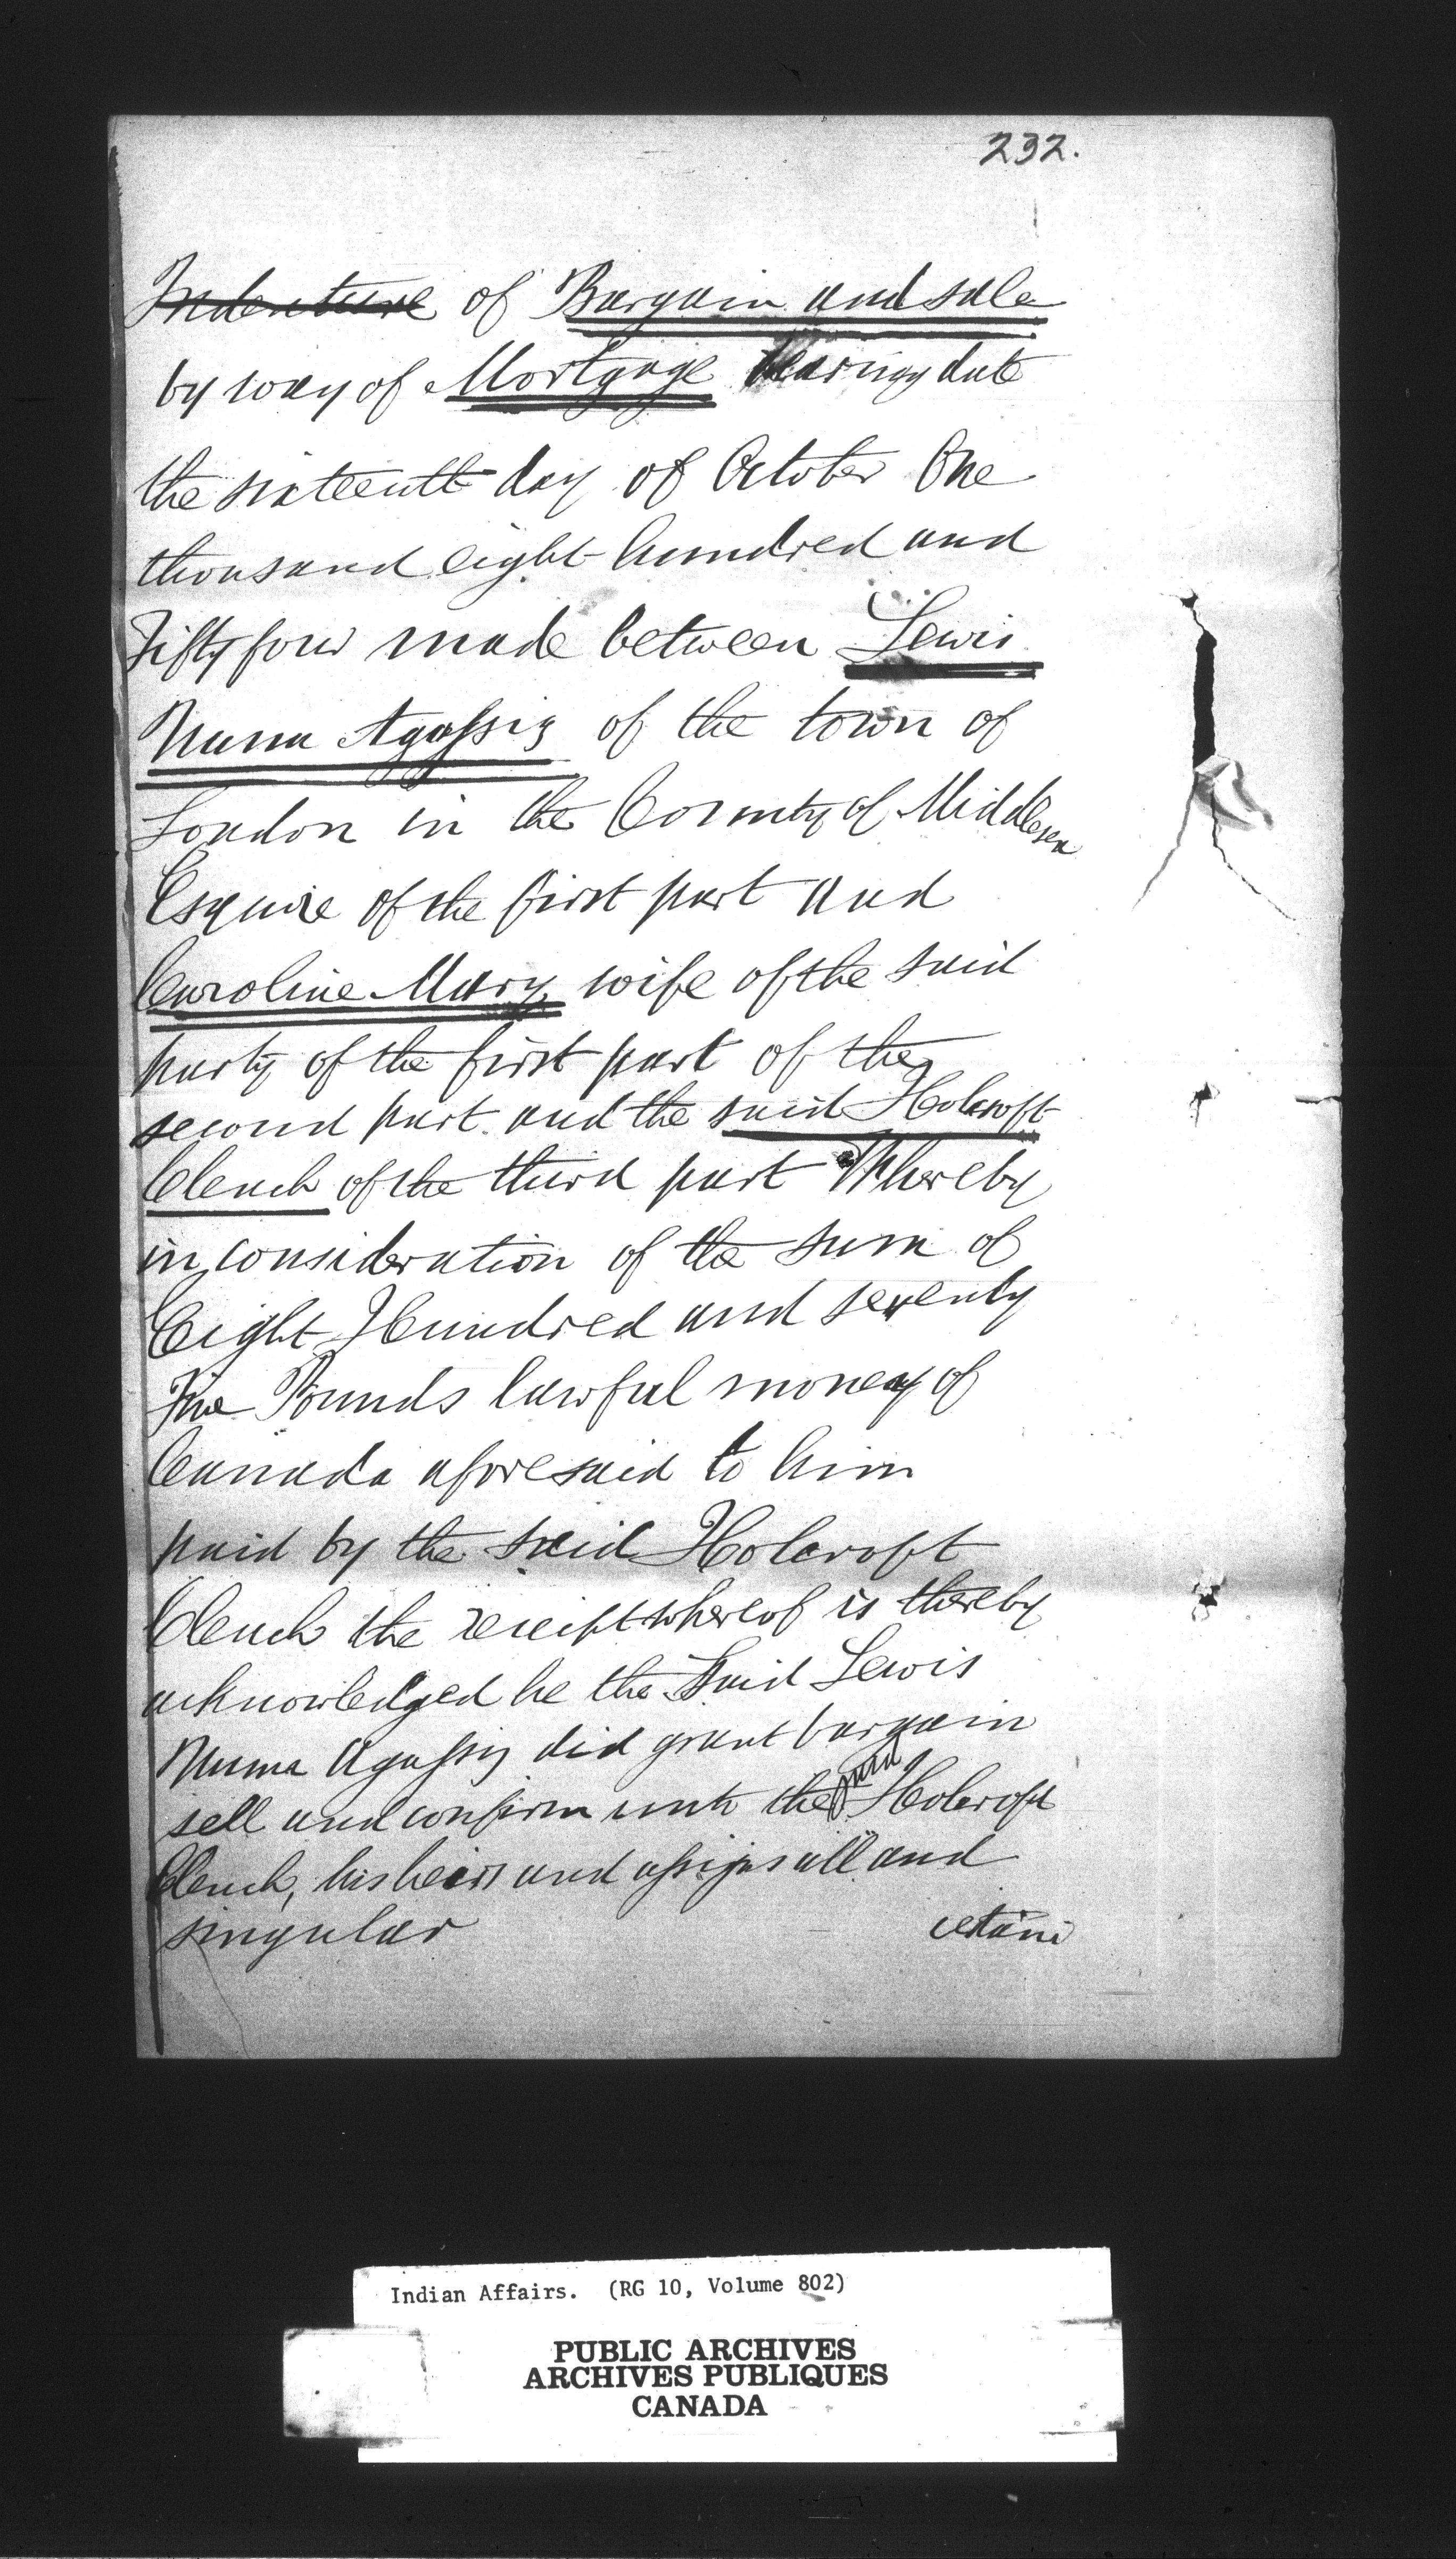 232.
Indenture of Bargain and sale
by way of Mortgage bearing date
the sixteenth day of October One
thousand eight hundred and
Fifty four made between Lewis
Numa Agassiz of the town of
London in the County of Middlesex
Esquire of the first part and
Caroline Mary wife of the said
party of the first part of the
second part and the said Holcroft
Clench of the third part Whereby
in consideration of the sum of
Eight Hundred and seventy
Five Pounds lawful money of
Canada aforesaid to him
paid by the said Holcroft
Clench the receipt whereof is thereby
acknowledged he the Said Lewis
Numa Agassiz did grant bargain
sell and confirm unto the said Holcroft
Clench, his heirs and assigns all and
singular certain
Indian Affairs. (RG 10, Volume 802)
PUBLIC ARCHIVES
ARCHIVES PUBLIQUES
CANADA